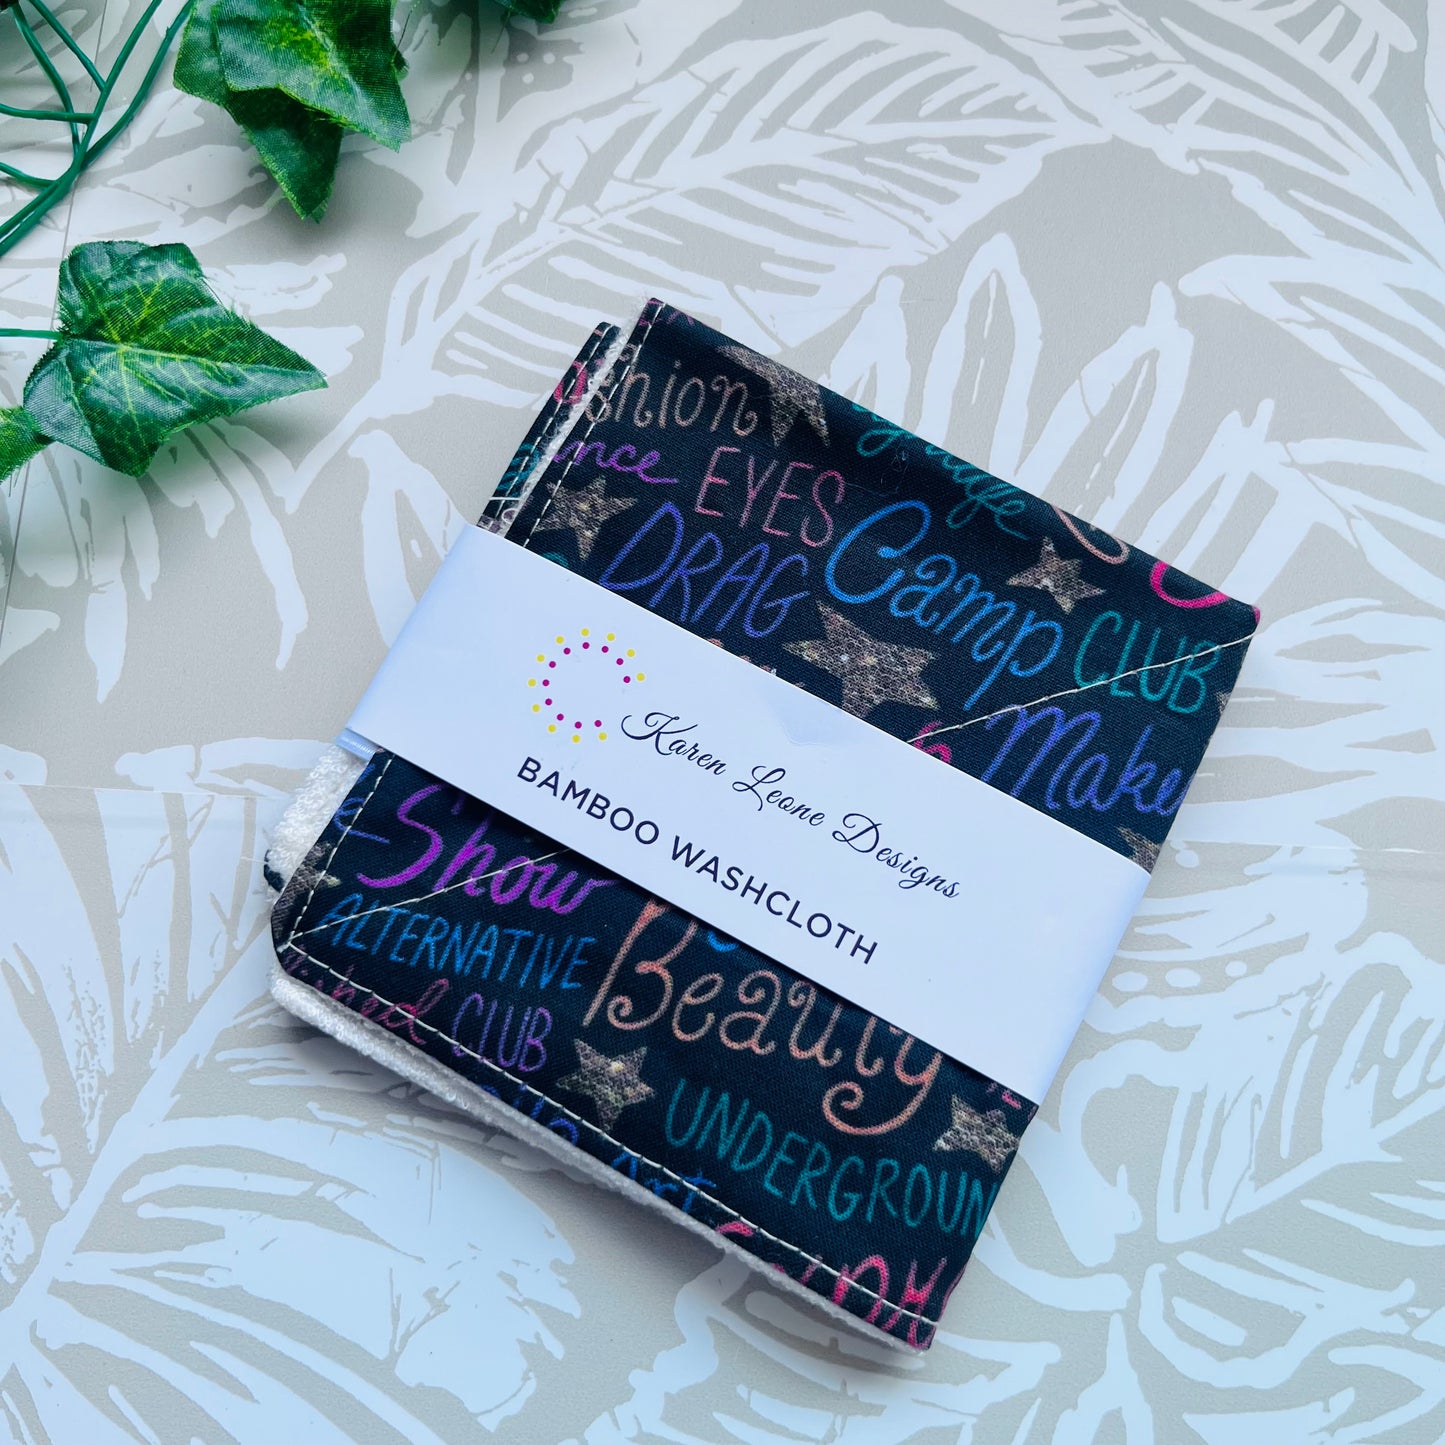 EYES
DRAG
Camp
CLUB
Make
Karen Leone Designs
BAMBOO WASHCLOTH
Show
ALTERNATIVE
Beauty
CLUB
UNDERGROUN